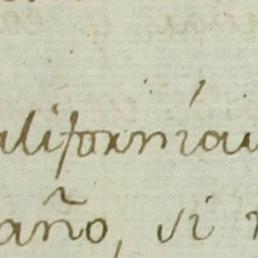 aliforniau
año, si